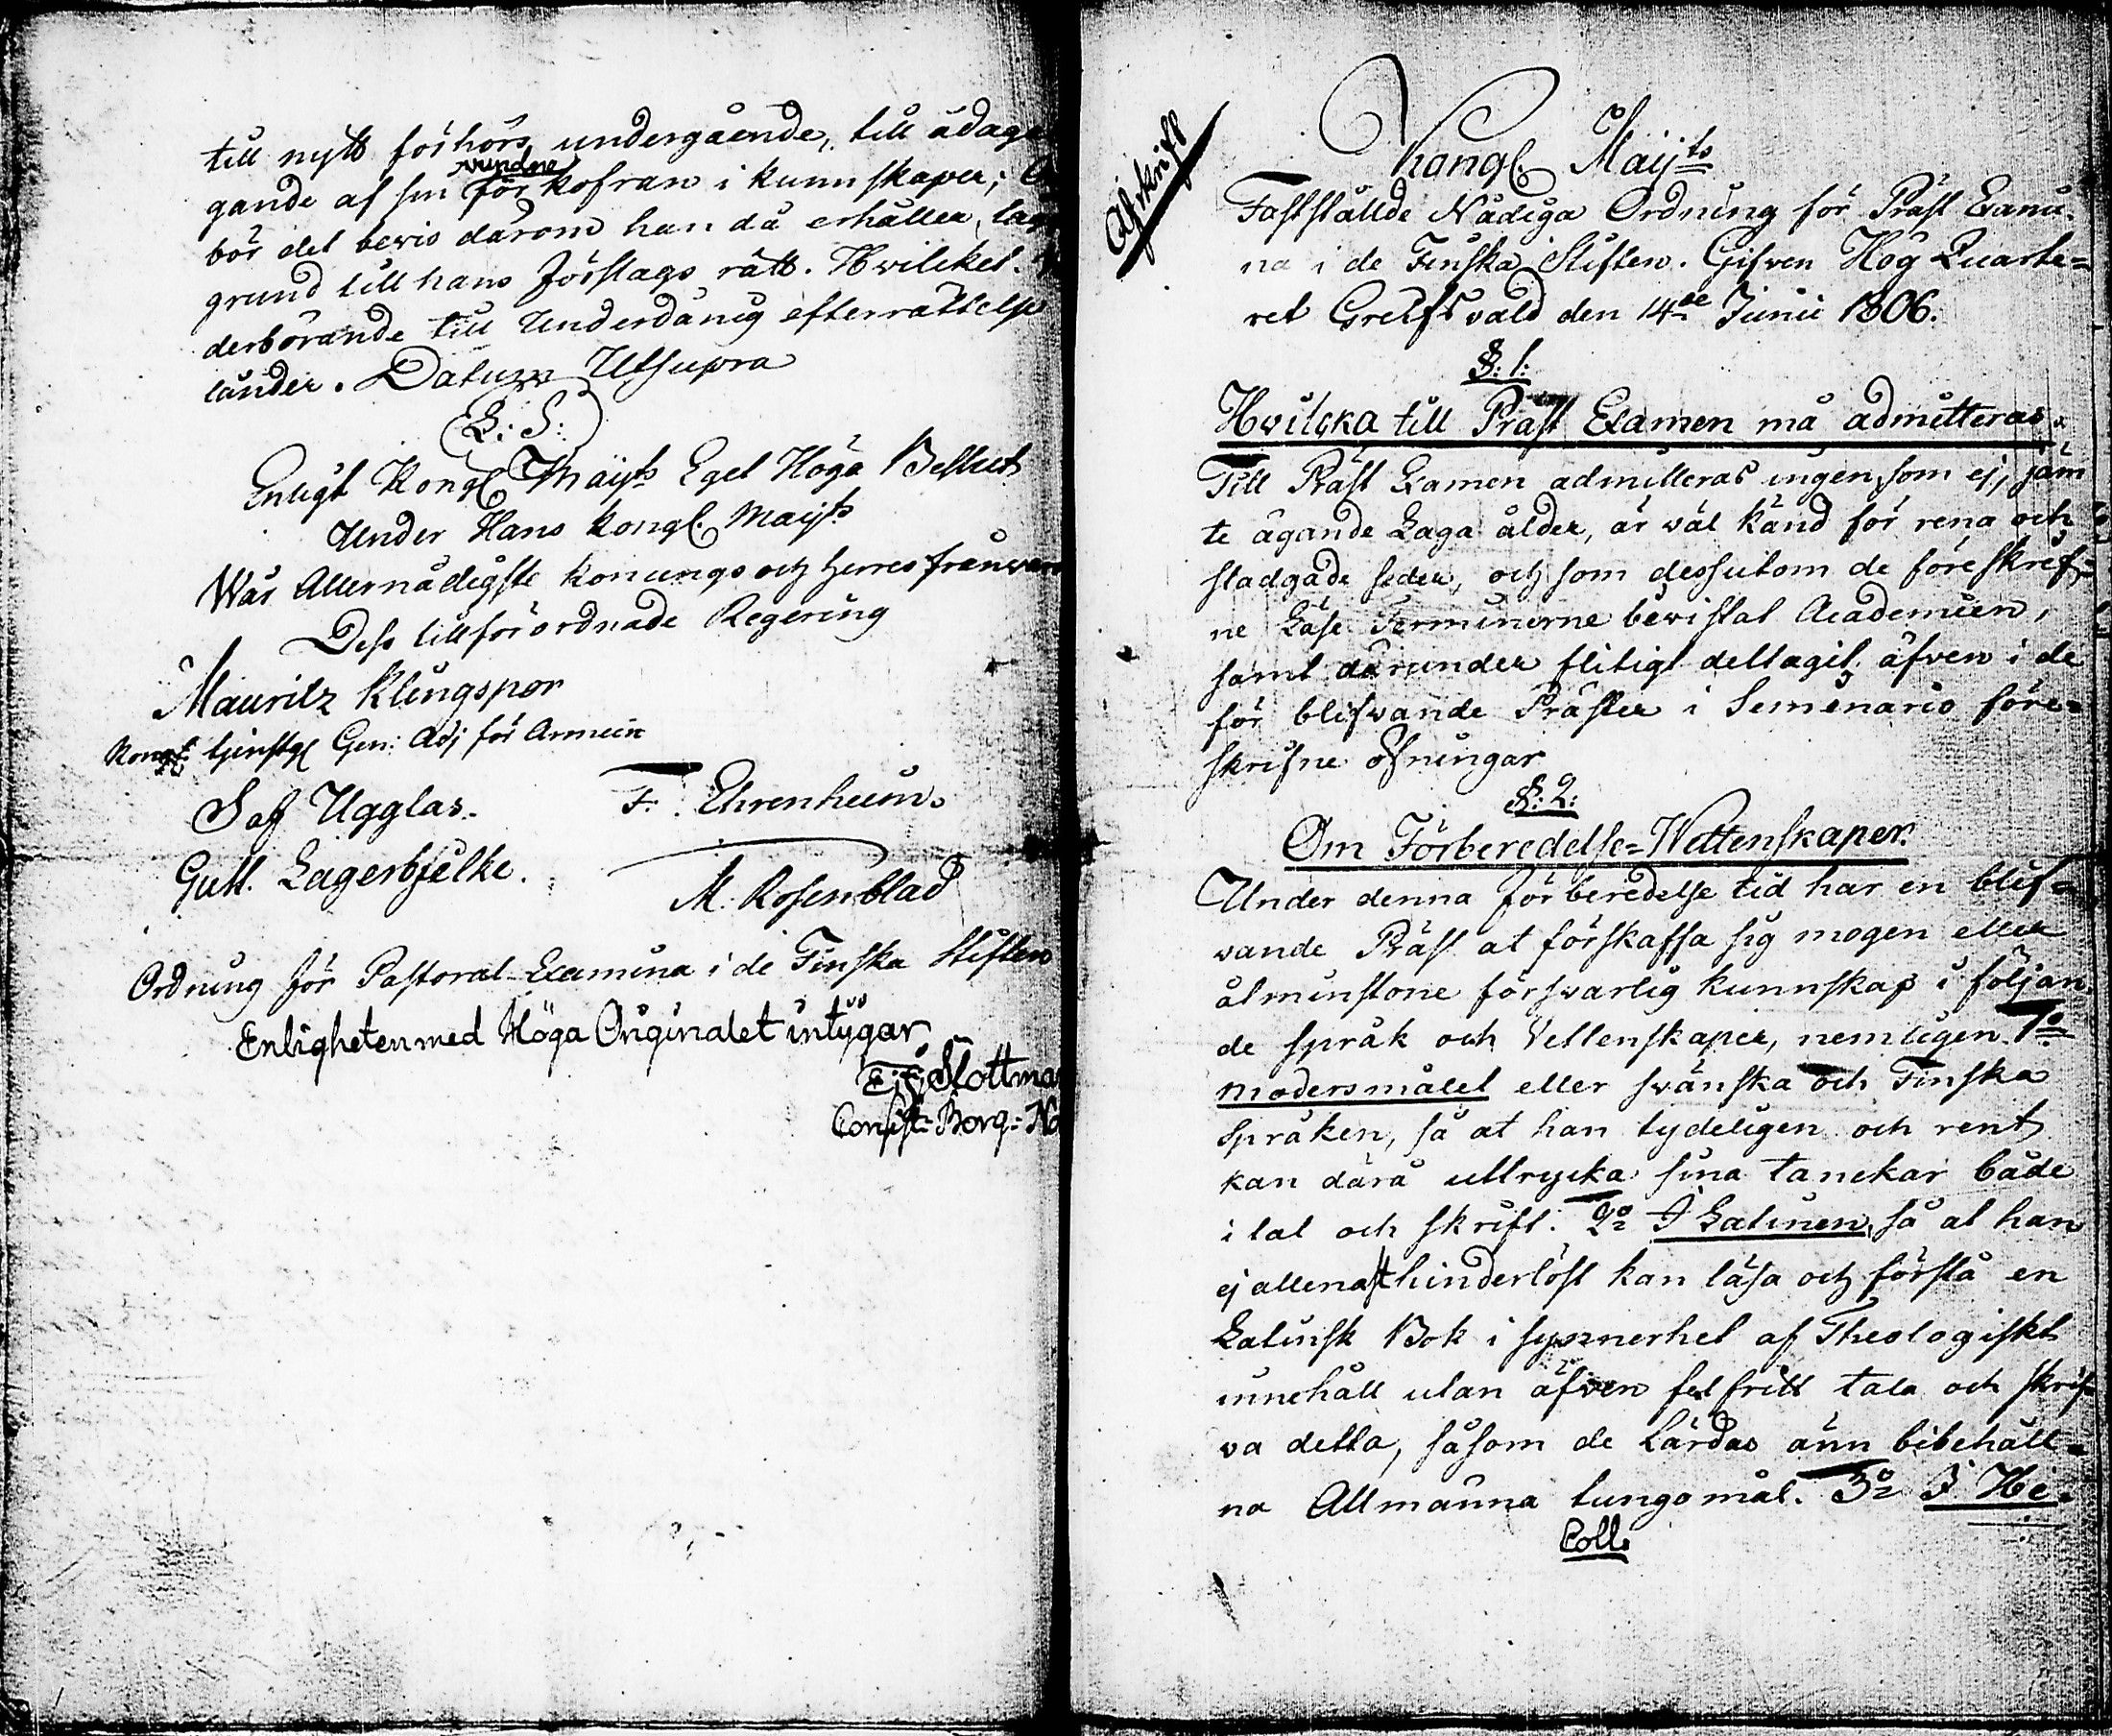 till nytt förhörs undergående, till ådaga
vundne
gande af sin förkofran i kunnskaper;
bör det bevis därom han då erhåller, läg
grund till hans Förslags rätt. Hvilcket
derbörande till Underdånig efterrättelse
länder. Datum Utsupra
(L: S:)
Enligt Kongl Maijts Eget Höga Beslut
Under Hans Kongl. Maijts
Wår Allernådigste Konungs och Herres frånvaro
Dess tillförordnade Regering
Mauritz Klingspor
Kongl: tjenstg Gen: Adj för Arméen
S af Ugglas.
F. Ehrenheim.
Gust. Lagerbjelke.
M. Rosenblad
Ordning för Pastoral-Examina i de Finska Stiften
Enligheten med Höga Originalet intÿgar
Slottma
Consist: Borg: No
Afskrift
Kongl. Maijts
Fastställde Nådiga Ordning för Präst Exami-
na i de Finska Stiften. Gifven Hög Quarte=
ret Greifsvald den 14de Junii 1806.
§. 1:
Hvilcka till Präst Examen må admitteras.
Till Präst Examen admitteras ingen, som ej, jäm
te ägande Laga ålder, är väl känd för rena och
stadgade seder, och som dessutom de föreskref-
ne Läse Terminerne bevistat Academien,
samt därunder flitigt deltagit äfven i de
för blifvande Präster i Seminario före=
skrifne öfningar
§. 2:
Om Förberedelse=Wettenskaper.
Under denna förberedelse tid har en blif=
vande Präst at förskaffa sig mogen eller
åtminstone försvarlig kunnskap i följan-
de språk och Vettenskaper, nemligen 1o
modersmålet eller svänska och Finska
språken, så at han tydeligen och rent
kan därå uttrycka sina tanckar både
i tal och skrift. 2o I Latinen, så at han
ej allenast hinderlöst kan läsa och förstå en
Latinsk Bok i synnerhet af Theologiskt
innehåll utan äfven felfritt tala och skrif
va detta, såsom de Lärdas änn bibehåll=
na Allmänna tungomål. 3o I He-
Coll.